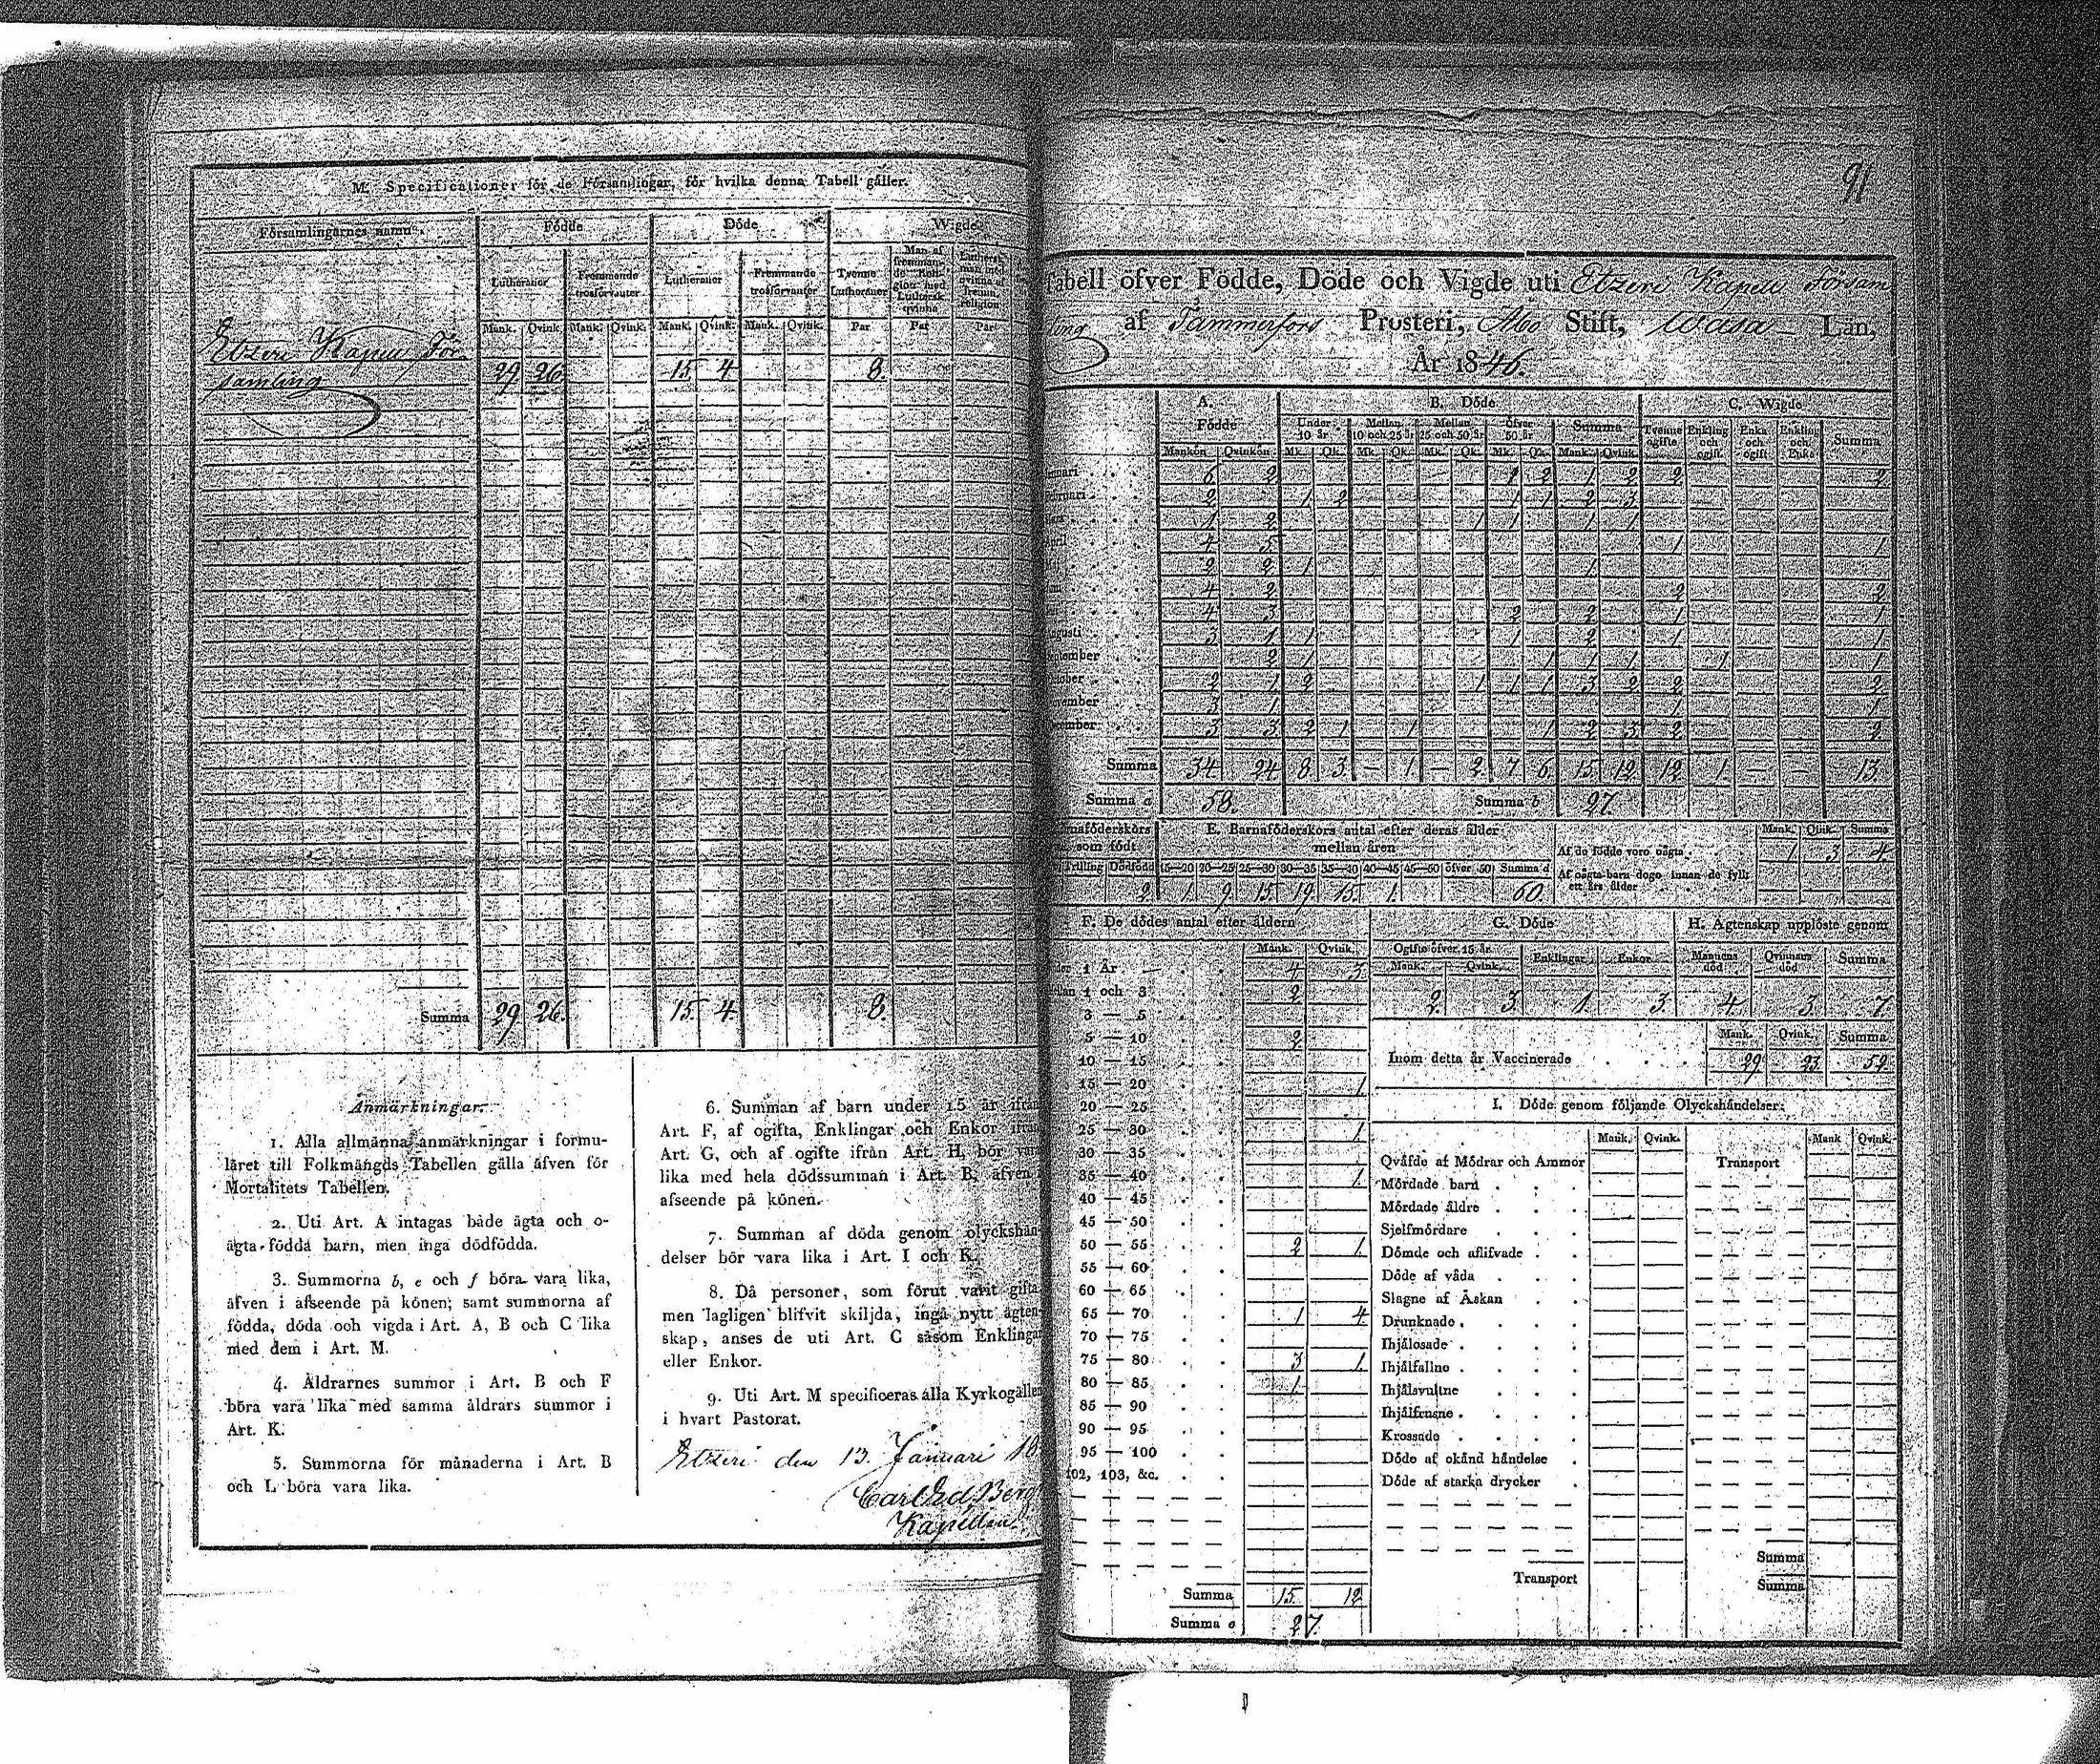 M. Specificationer för de Församlingar, för hvilka denna Tabell gäller.
Församlingarnes namn. Födde Döde Wigde
Lutheraner Fremmande trosförvanter Lutheraner Fremmande trosförvanter Tvenne Lutheraner Man af fremmande Religion med Luthersk qvinna Luthersk man med qvinna af frem. religion
Mank. Qvink. Mank. Qvink. Mank. Qvink. Mank. Qvink. Par Par Par
Etzeri Kapell För-
samling 29 26. 15 4 8.
Summa 29 26. 15. 4 8.
Anmärkningar.
1. Alla allmänna anmärkningar i formu-
läret till Folkmängds Tabellen gälla äfven för
Mortalitets Tabellen.
2. Uti Art. A intagas både ägta och o-
ägta födda barn, men inga dödfödda.
3. Summorna b, e och f böra vara lika,
äfven i afseende på könen; samt summorna af
födda, döda och vigda i Art. A, B och C lika
med dem i Art. M.
4. Åldrarnes summor i Art. B och F
böra vara lika med samma åldrars summor i
Art. K.
5. Summorna för månaderna i Art. B
och L böra vara lika.
6. Summan af barn under 15 år ifrån
Art. F, af ogifta, Enklingar och Enkor ifrån
Art. G, och af ogifte ifrån Art. H, bör vara
lika med hela dödssumman i Art. B, äfven i
afseende på könen.
7. Summan af döda genom olyckshän-
delser bör vara lika i Art. I och K.
8. Då personer, som förut varit gifta
men lagligen blifvit skiljda, ingå nytt ägten-
skap, anses de uti Art. C såsom Enklingar
eller Enkor.
9. Uti Art. M specificeras alla Kyrkogällen
i hvart Pastorat.
Etzeri den 13. Januari 18
Carl Ed. Berg
Kapellan.
91
Tabell öfver Födde, Döde och Vigde uti Etzeri Kapell Församling
af Tammerfors Prosteri, Åbo Stift, Wasa Län,
År 1846.
A. Födde B. Döde C. Wigde
Under 10 år Mellan 10 och 25 år Mellan 25 och 50 år Öfver 50 år Summa Tvenne ogifte Enkling och ogift Enka och ogift Enkling och Enka Summa
Mankön Qvinkön Mk. Qk. Mk. Qk. Mk. Qk. Mk. Qk. Mank. Qvink.
nuari 6 2 1 2 1 2 2 2
bruari 2 1 2 1 1 2 3
1 2 1 1 1 1
pril 4 5 1 1
2 2 1 1
4 2 2 2
4 3 2 2 1 1
ugusti 3 1 1 1 2 1 1
ptember 2 1 1 1 1 1 1
ktober 2 1 2 1 1 1 3 2 2 2
vember 3 1 1 1
cember 3 3 2 1 1 1 2 3 2 2
Summa 34 24 8 3. — 1 — 2 7 6 15 12 12 1. — — 13
Summa a 58. Summa b 27.
rnaföderskors som födt E. Barnaföderskors antal efter deras ålder mellan åren Mank. Qvink. Summa
Trilling Dödfödt 15—20 20—25 25—30 30—35 35—40 40—45 45—50 öfver 50 Summa d
2. 1. 9. 15. 19. 15. 1. 60.
Af de födde voro oägta 1. 3 4.
Af oägta barn dogo innan de fyllt ett års ålder
F. De dödes antal efter åldern
Mank. Qvink.
1 År 4 3.
1 och 3 2
3 — 5
5 — 10 2
10 — 15
15 — 20 1.
20 — 25
25 — 30 1.
30 — 35
35 — 40 1.
40 — 45
45 — 50
50 — 55 2 1.
55 — 60
60 — 65
65 — 70 1 4.
70 — 75
75 — 80 3 1.
80 — 85 1
85 — 90
90 — 95
95 — 100
102, 103, &c.
Summa 15. 12
Summa e 27.
G. Döde
Ogifte öfver 15 år Enklingar Enkor
Mank. Qvink.
2. 3. 1. 3.
H. Ägtenskap upplöste genom
Mannens död Qvinnans död Summa
4. 3. 7.
Mank. Qvink. Summa
Inom detta år Vaccinerade 29. 23. 52.
I. Döde genom följande Olyckshändelser:
Mank. Qvink. Mank Qvink.
Qväfde af Mödrar och Ammor Transport
Mördade barn
Mördade äldre
Sjelfmördare
Dömde och aflifvade
Döde af våda
Slagne af Åskan
Drunknade
Ihjälosade
Ihjälfallne
Ihjälsvultne
Ihjälfrusne
Krossade
Döde af okänd händelse
Döde af starka drycker
Summa
Transport Summa